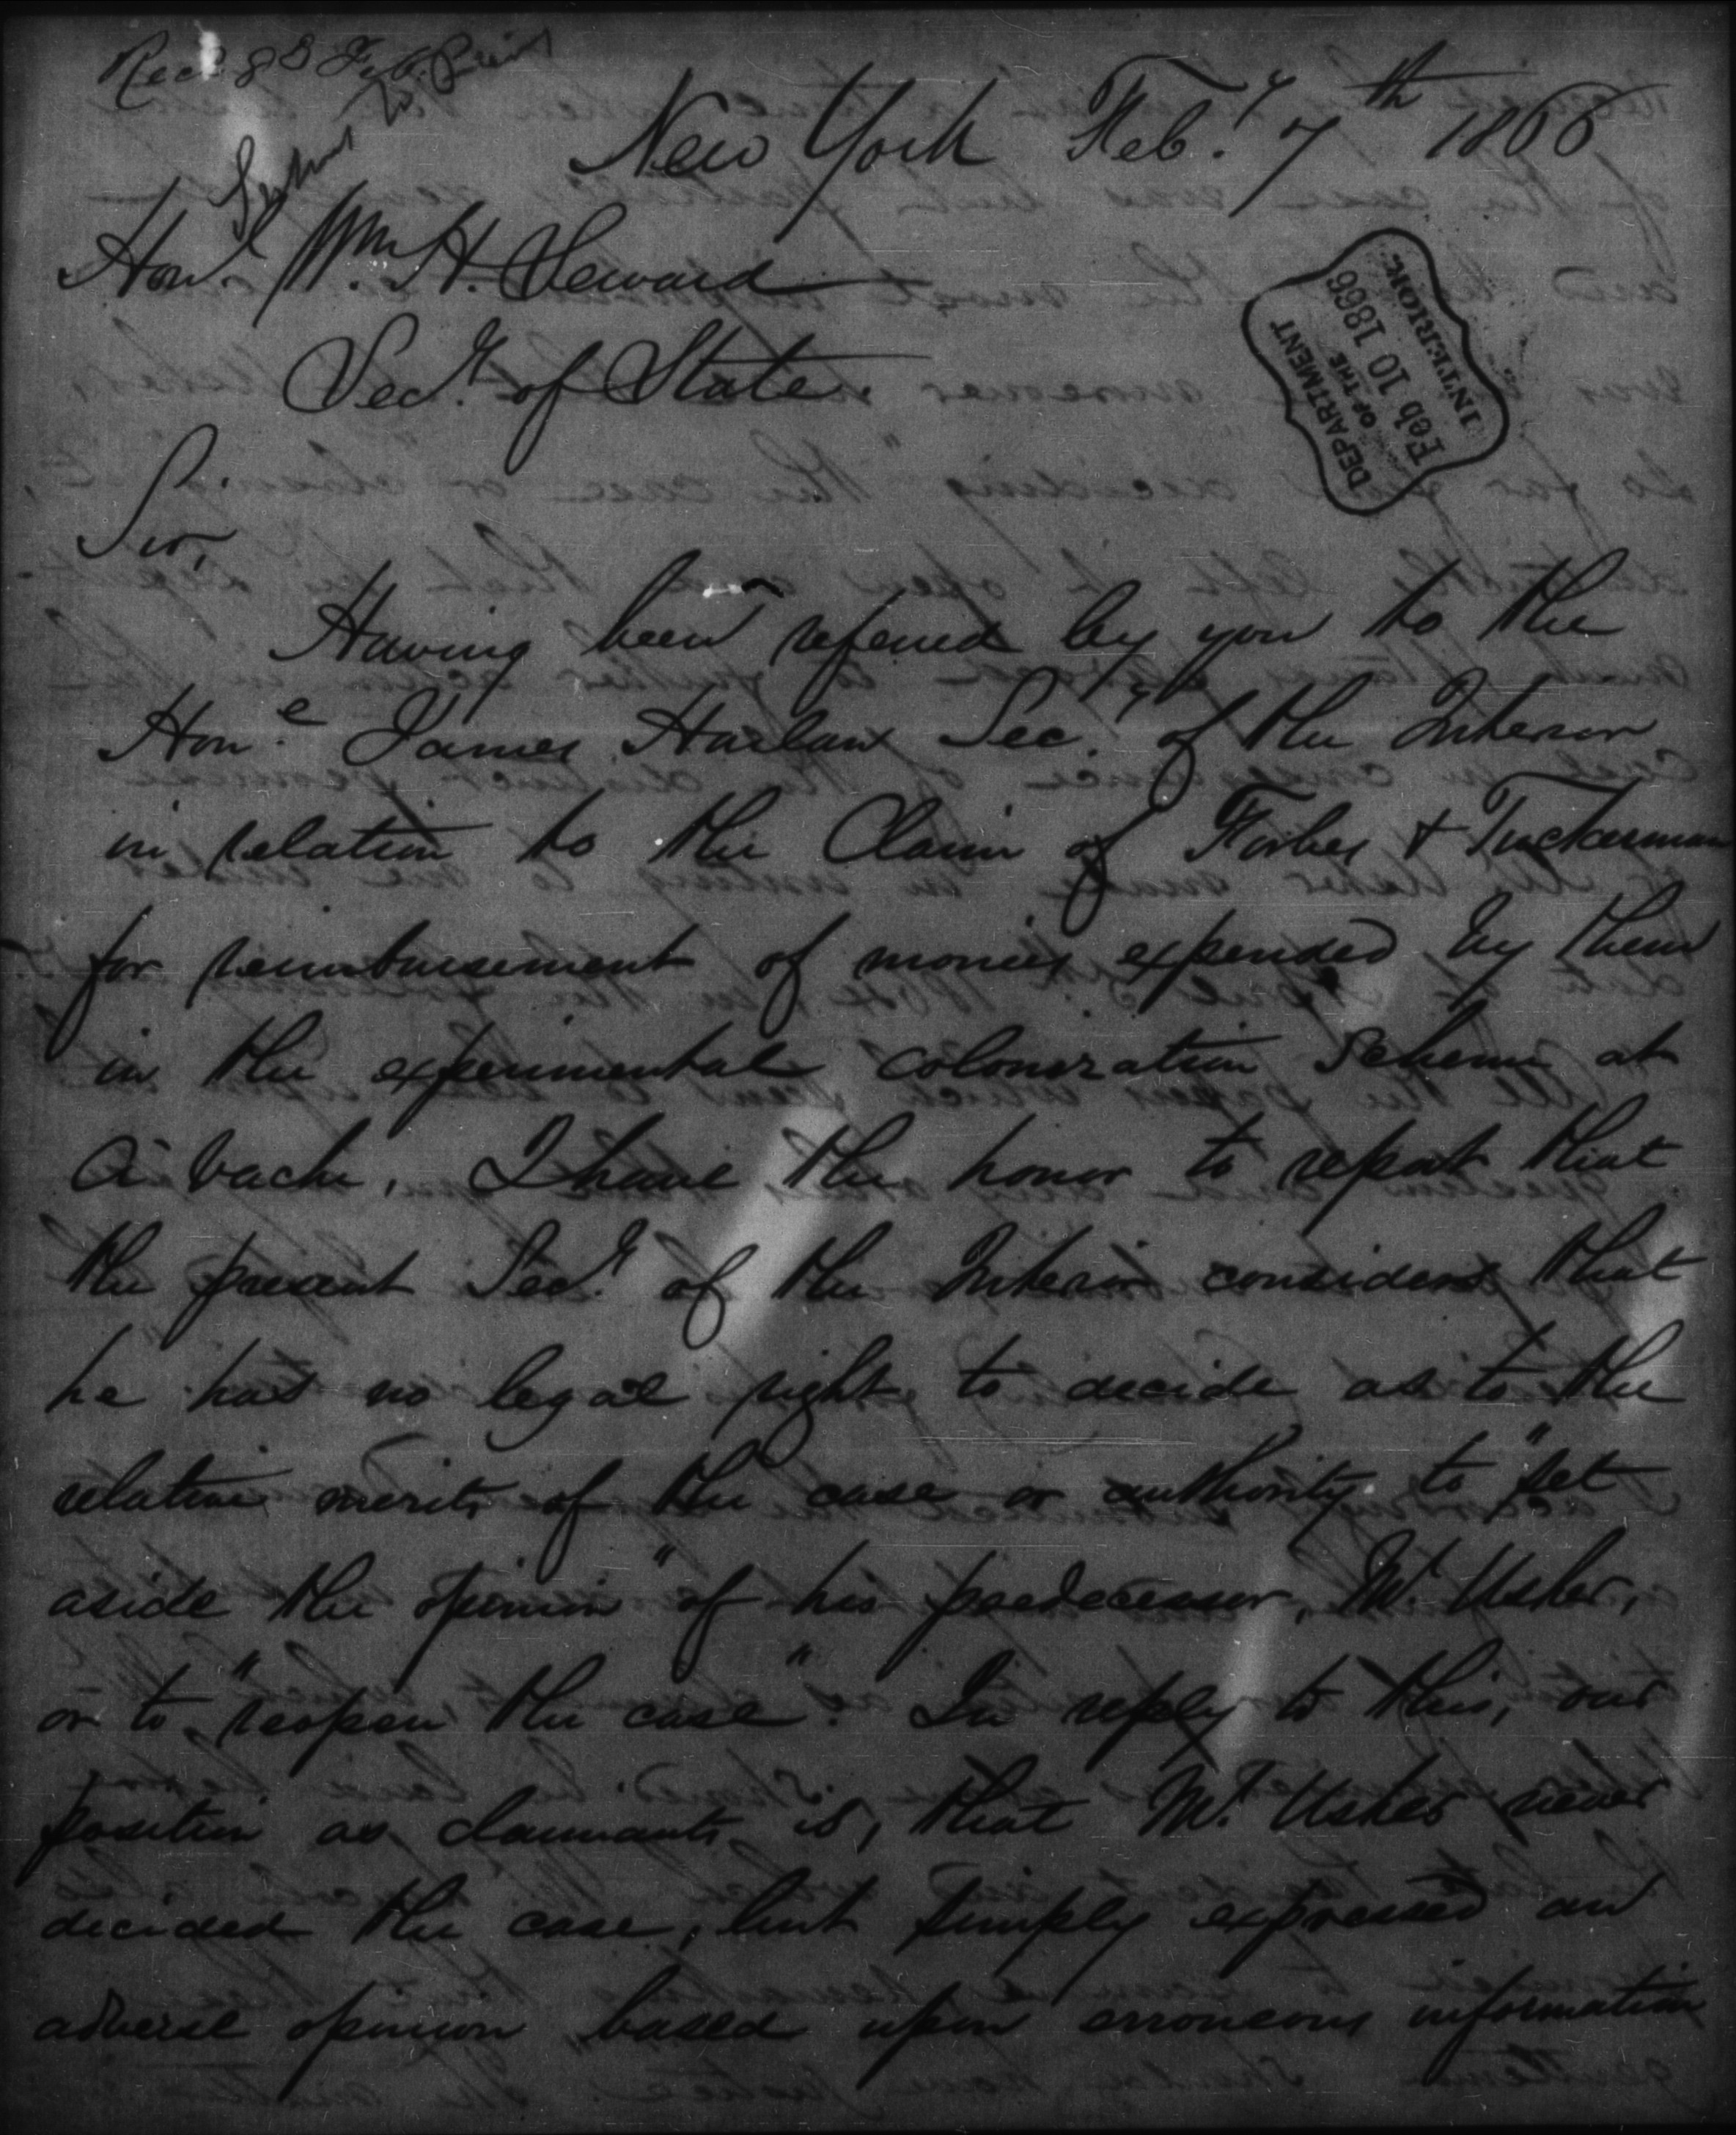 Recd 8th Feb.
New York Feb.y 7th 1866
Honl Wm H. Seward
Secy. of State.
DEPARTMENT
OF THE
Feb 10 1866
INTERIOR.
Sir,
Having been referred by you to the
Hon.e James Harlan Sec.y of the Interior
in relation to the Claim of Forbes & Tuckerman
for reimbursement of monies expended by them
in the experimental colonization scheme at
A'vache, I have the honor to report that
the present Secy. of the Interior considers that
he has no legal right to decide as to the
relative merits of the case or authority to "set
aside the opinion" of his predecessor, Mr Usher,
or to "reopen the case". In reply to this, our
position as claimants is, that Mr. Usher never
decided the case, but simply expressed an
adverse opinion based upon erroneous information